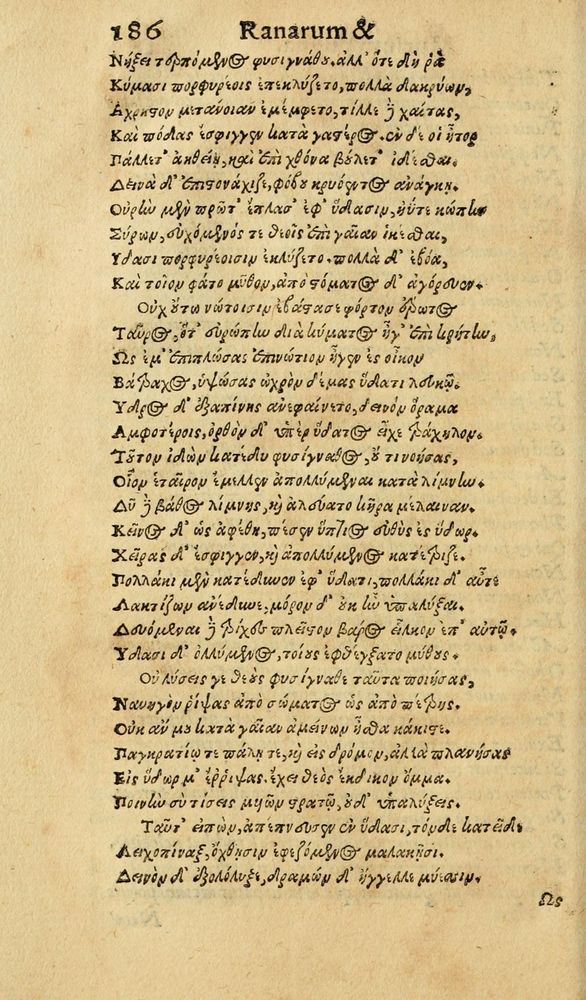 186 Ranarum &
Νήξει τερπόμενος φυσιγνάθου. ἀλλ' ὅτε δὴ ῥα
Κύμασι πορφυρέοις ἐπεκλύζετο, πολλὰ δακρύων,
Αχρηστον μετάνοιαν ἐμέμφετο, τίλλε δὲ χαίτας,
Καὶ πόδας ἔσφιγγεν κατὰ γαστέρος. ἐν δέ οἱ ἦτορ
Πάλλετ' ἀηθείῃ, καὶ ἐπὶ χθόνα βούλετ' ἱδέσθαι.
Δεινὰ δ' ἐπεστονάχιζε, φόβου κρυόεντος ἀνάγκῃ.
Οὐρὴν μὲν πρῶτ' ἔπλασ' ἐφ' ὕδασιν, ἠΰτε κώπην
Σύρων, εὐχόμενός τε θεοῖς ἐπὶ γαῖαν ἱκέσθαι,
Υδασι πορφυρέοισιν ἐκλύζετο. πολλὰ δ' ἐβόα,
Καὶ τοῖον φάτο μῦθον, ἀπὸ στόματος δ' ἀγόρευεν.
Οὐχ οὕτω νώτοισιν ἐβάστασε φόρτον ἔρωτος
Ταῦρος, ὅτ' εὐρώπην διὰ κύματος ἦγ' ἐπὶ κρήτην,
Ως ἔμ' ἐπιπλώσας ἐπινώτιον ἦγεν ἐς οἶκον
Βάτραχος, ὑψώσας ὠχρὸν δέμας ὕδατι λευκῷ.
Υδρος δ' ἐξαπίνης ἀνεφαίνετο, δεινὸν ὅραμα
Αμφοτέροις, ὀρθὸν δ' ὑπὲρ ὕδατος εἶχε τράχηλον.
Τοῦτον ἰδὼν κατέδυ φυσίγναθος, οὔ τι νοήσας,
Οἷον ἑταῖρον ἔμελλεν ἀπολλύμεναι κατὰ λίμνην.
Δῦ δὲ βάθος λίμνης, καὶ ἀλεύατο κῆρα μέλαιναν.
Κεῖνος δ' ὡς ἀφέθη, πέσεν ὕπτιος εὐθὺς ἐς ὕδωρ.
Χεῖρας δ' ἔσφιγγεν, καὶ ἀπολλύμενος κατέτριζε.
Πολλάκι μὲν κατέδυνεν ἐφ' ὕδατι, πολλάκι δ' αὖτε
Λακτίζων ἀνέδυνε, μόρον δ' οὐκ ἦν ὑπαλύξαι.
Δευόμεναι δὲ τρίχες πλεῖστον βάρος εἷλκον ἐπ' αὐτῷ.
Υδασι δ' ὀλλύμενος, τοίους ἐφθέγξατο μύθους.
Οὐ λύσεις γε θεοὺς φυσίγναθε ταῦτα ποιήσας,
Ναυηγὸν ῥίψας ἀπὸ σώματος ὡς ἀπὸ πέτρης.
Οὐκ ἄν μου κατὰ γαῖαν ἀμείνων ἦσθα κάκιστε.
Παγκρατίῳ τε πάλῃ τε, καὶ εἰς δρόμον, ἀλλὰ πλανήσας
Εἰς ὕδωρ μ' ἔρριψας. ἔχει θεὸς ἔκδικον ὄμμα.
Ποινὴν σὺ τίσεις μυῶν στρατῷ, οὐδ' ὑπαλύξεις.
Ταῦτ' εἰπὼν, ἀπέπνευσεν ἐν ὕδασι, τόνδε κατεῖδε
Λειχοπίναξ, ὄχθῃσιν ἐφεζόμενος μαλακῇσι.
Δεινὸν δ' ἐξολόλυξε, δραμὼν δ' ἤγγελλε μύεσσιν.
Ως